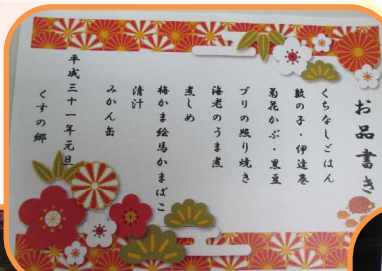 お品書き
くちなしごはん
数の子・伊達巻
菊花かぶ・黒豆
ブリの照り焼き
海老のうま煮
煮しめ
梅かま絵馬かまぼこ
清汁
みかん缶
平成三十一年元旦
くすの郷